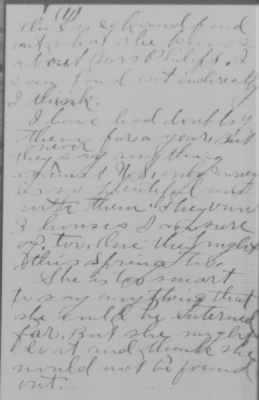 (4)
this week and find
out what she knows
about Mrs Philips. I
can find out indirectly
I think.
I have had doubts
them for a year, but
never
they say anything
against U.S. only money
is so plentiful
with them. They own
3 houses I am sure
of, too. One they might
this spring too.
She is too smart
to say anything that
she could be interned
for. But she might
let it and think she
would not be found
out.